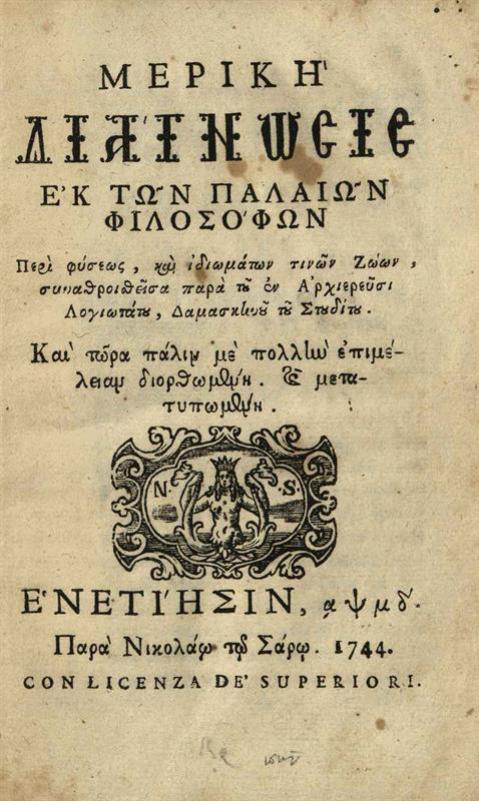 ΜΕΡΙΚῊ
ΔΙΆΓΝΩϹΙϹ
Ε'Κ ΤΩ͂Ν ΠΑΛΑΙΩ͂Ν
ΦΙΛΟΣΟ'ΦΩΝ
Περὶ φύσεως, καὶ ἰδιωμάτων τινῶν Ζώων,
συναθροιθεῖσα παρὰ τοῦ ἐν Ἀρχιερεῦσι
Λογιωτάτου, Δαμασκηνοῦ τοῦ Στουδίτου.
Καὶ τῶρα πάλιν μὲ πολλὴν ἐπιμέ-
λειαν διορθωμένη. Καὶ μετα-
τυπωμένη.
N. S.
Ε'ΝΕΤΙ'ΗΣΙΝ, αψμδ.
Παρὰ Νικολάῳ τῷ Σάρῳ. 1744.
CON LICENZA DE' SUPERIORI.